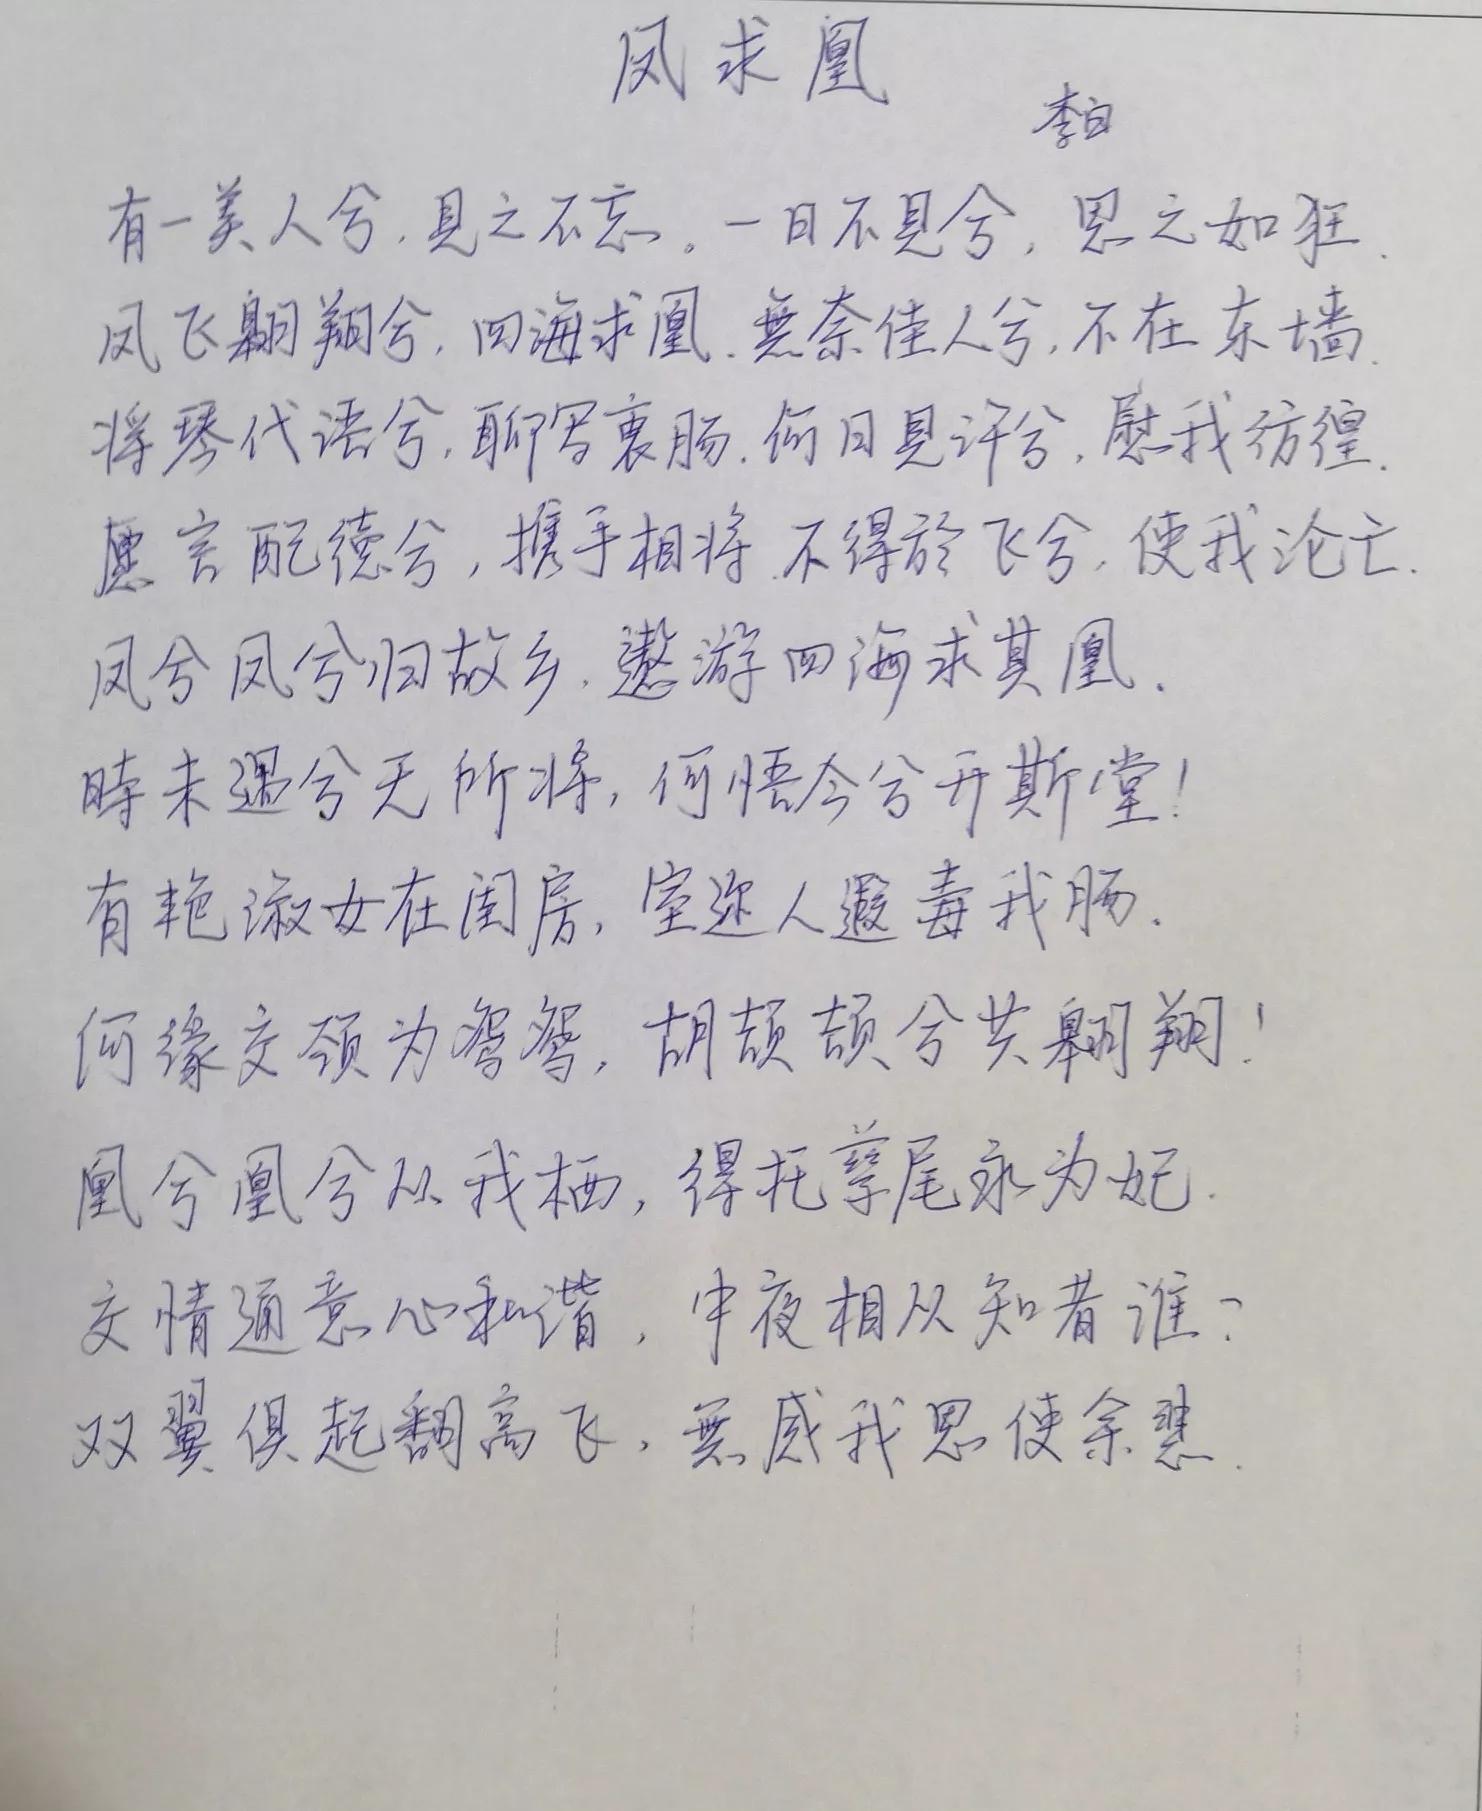 凤求凰
李白
有一美人兮,见之不忘。一日不见兮,思之如狂.
凤飞翱翔兮,四海求凰.無奈佳人兮,不在东墙.
将琴代语兮,聊写衷肠.何日見许兮,慰我彷徨.
愿言配德兮,携手相将.不得於飞兮,使我沦亡.
凤兮凤兮归故乡,遨游四海求其凰.
時未遇兮无所将,何悟今兮升斯堂!
有艳淑女在闺房,室迩人遐毒我肠.
何缘交颈为鸳鸯,胡颉颃兮共翱翔!
凰兮凰兮从我栖,得托孳尾永为妃.
交情通意心和谐,中夜相从知者谁?
双翼俱起翻高飞,無感我思使余悲.